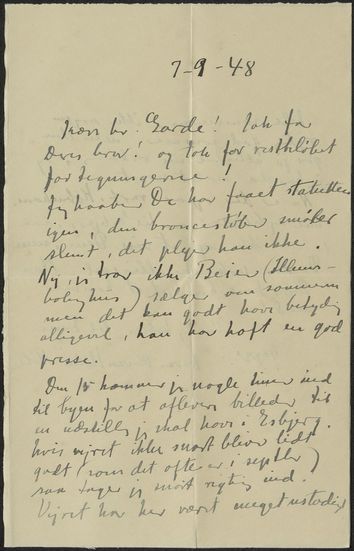 7-9-48
Kære hr. Garde! Tak for
Deres brev! og tak for restbeløbet
for tegningerne!
Jeg haaber De har faaet statuetten
igen, den broncestøber smøler
slemt, det plejer han ikke.
Nej, jeg tror ikke Beier (Illums-
bolighus) sælger om sommeren
men det kan godt have betydn
alligevel, han har haft en god
presse.
Den 15 kommer jeg nogle timer ind
til byen for at aflevere billeder til
en udstilling jeg skal have i Esbjerg.
hvis vejret ikke snart bliver lidt
godt (som det ofte er i septbr)
saa tager jeg snart rigtig ind.
Vejret har her været meget ustadigt